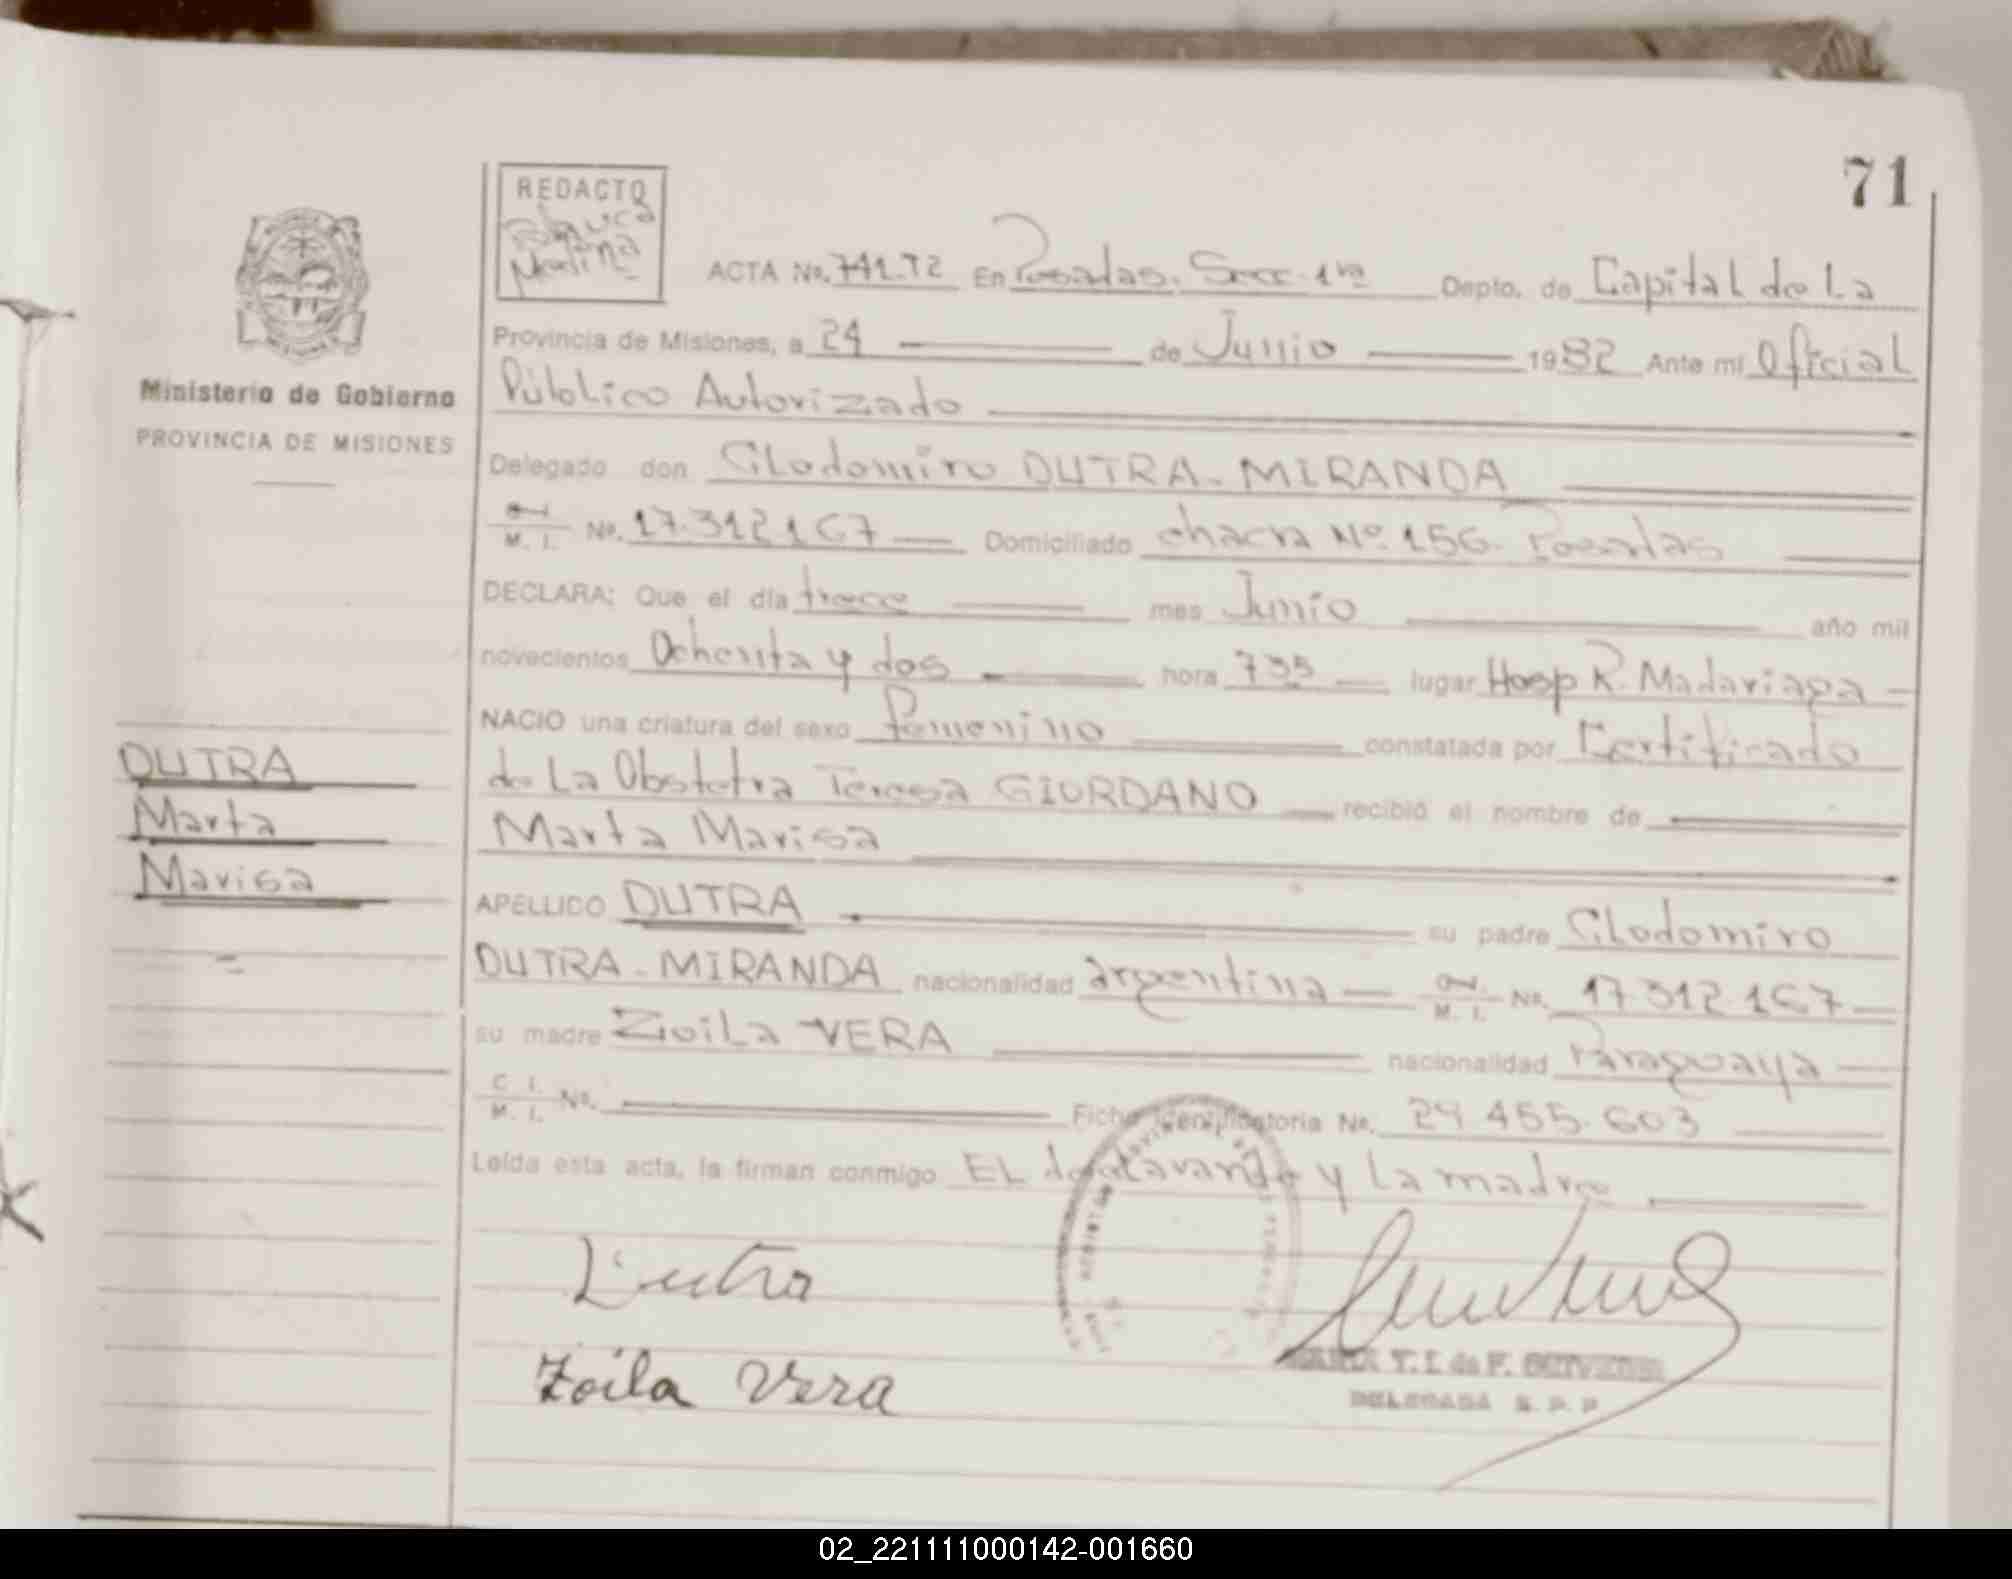 71
REDACTO
Medina
ACTA No. 741.T2 En Posadas. Secc. 1ra Depto. de Capital de La
Provincia de Misiones, a 24 de Junio 1982 Ante mí Oficial
Público Autorizado
Ministerio de Gobierno
PROVINCIA DE MISIONES
Delegado don Clodomiro DUTRA-MIRANDA
M. I. No. 17.312.167 Domiciliado chacra No. 156. Posadas
DECLARA: Que el día trece mes Junio año mil
novecientos Ochenta y dos hora 735 lugar Hosp R. Madariaga
NACIO una criatura del sexo femenino constatada por Certificado
de La Obstetra Teresa GIORDANO recibió el nombre de
Marta Marisa
DUTRA
Marta
Marisa
APELLIDO DUTRA su padre Clodomiro
DUTRA-MIRANDA nacionalidad argentina M. I. No. 17.312.167
su madre Zoila VERA nacionalidad Paraguaya
C. I.
M. I. No. Ficha Identificatoria No. 29.455.603
Leída esta acta, la firman conmigo EL declarando y la madre
Dutra
Zoila Vera
MARIA T. I. de F.
DELEGADA R. P. P
02_221111000142-001660